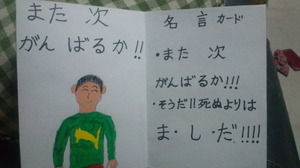 また 次
がん ばるか!!
名言 カード
・また 次
がんばるか!!!
・そうだ!!死ぬよりは
ま・し・だ!!!!